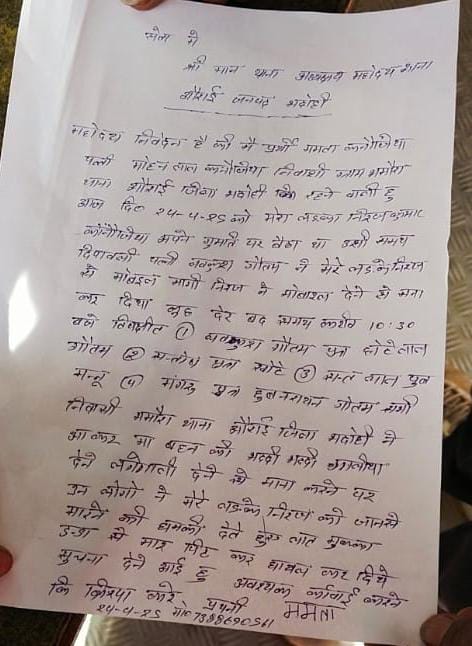 सेवा में
श्री मान थाना अध्यक्ष महोदय थाना
औराई जनपद भदोही
महोदय निवेदन है की मै प्रार्थी ममता कनौजिया
पत्नी मोहन लाल कनौजिया निवासी ग्राम ममौरा
थाना औराई जिला भदोही कि रहने वाली हु
आज दि० 24-4-25 को मेरा लडका निरज कुमार
कनौजिया अपने गुमटी पर बैठा था उसी समय
दिपावली पत्नी लवकुश गौतम ने मेरे लडके निरज
से मोबाइल मागी निरज ने मोबाइल देने से मना
कर दिया कुछ देर बाद समय करीब 10:30
बजे विपक्षीत ① लवकुश गौतम पुत्र छोटेलाल
गौतम ② सन्तोष पुत्र ③ सन्त लाल पुत्र
मन्नू ④ मंगरु पुत्र गौतम सभी
निवासी ममौरा थाना औराई जिला भदोही ने
आ कर मा बहन की भद्दी भद्दी गालीया
देने लगे गाली देने से माना करने पर
उन लोगो ने मेरे लडके निरज को जानसे
मारने की धमकी देते हुए लात मुक्का
डन्डा से मार पिट कर घायल कर दिये
सुचना देने आई हु अवश्यक कार्वाई करने
कि किरपा करे प्रार्थनी ममता
24-4-25 मो० 7388690561